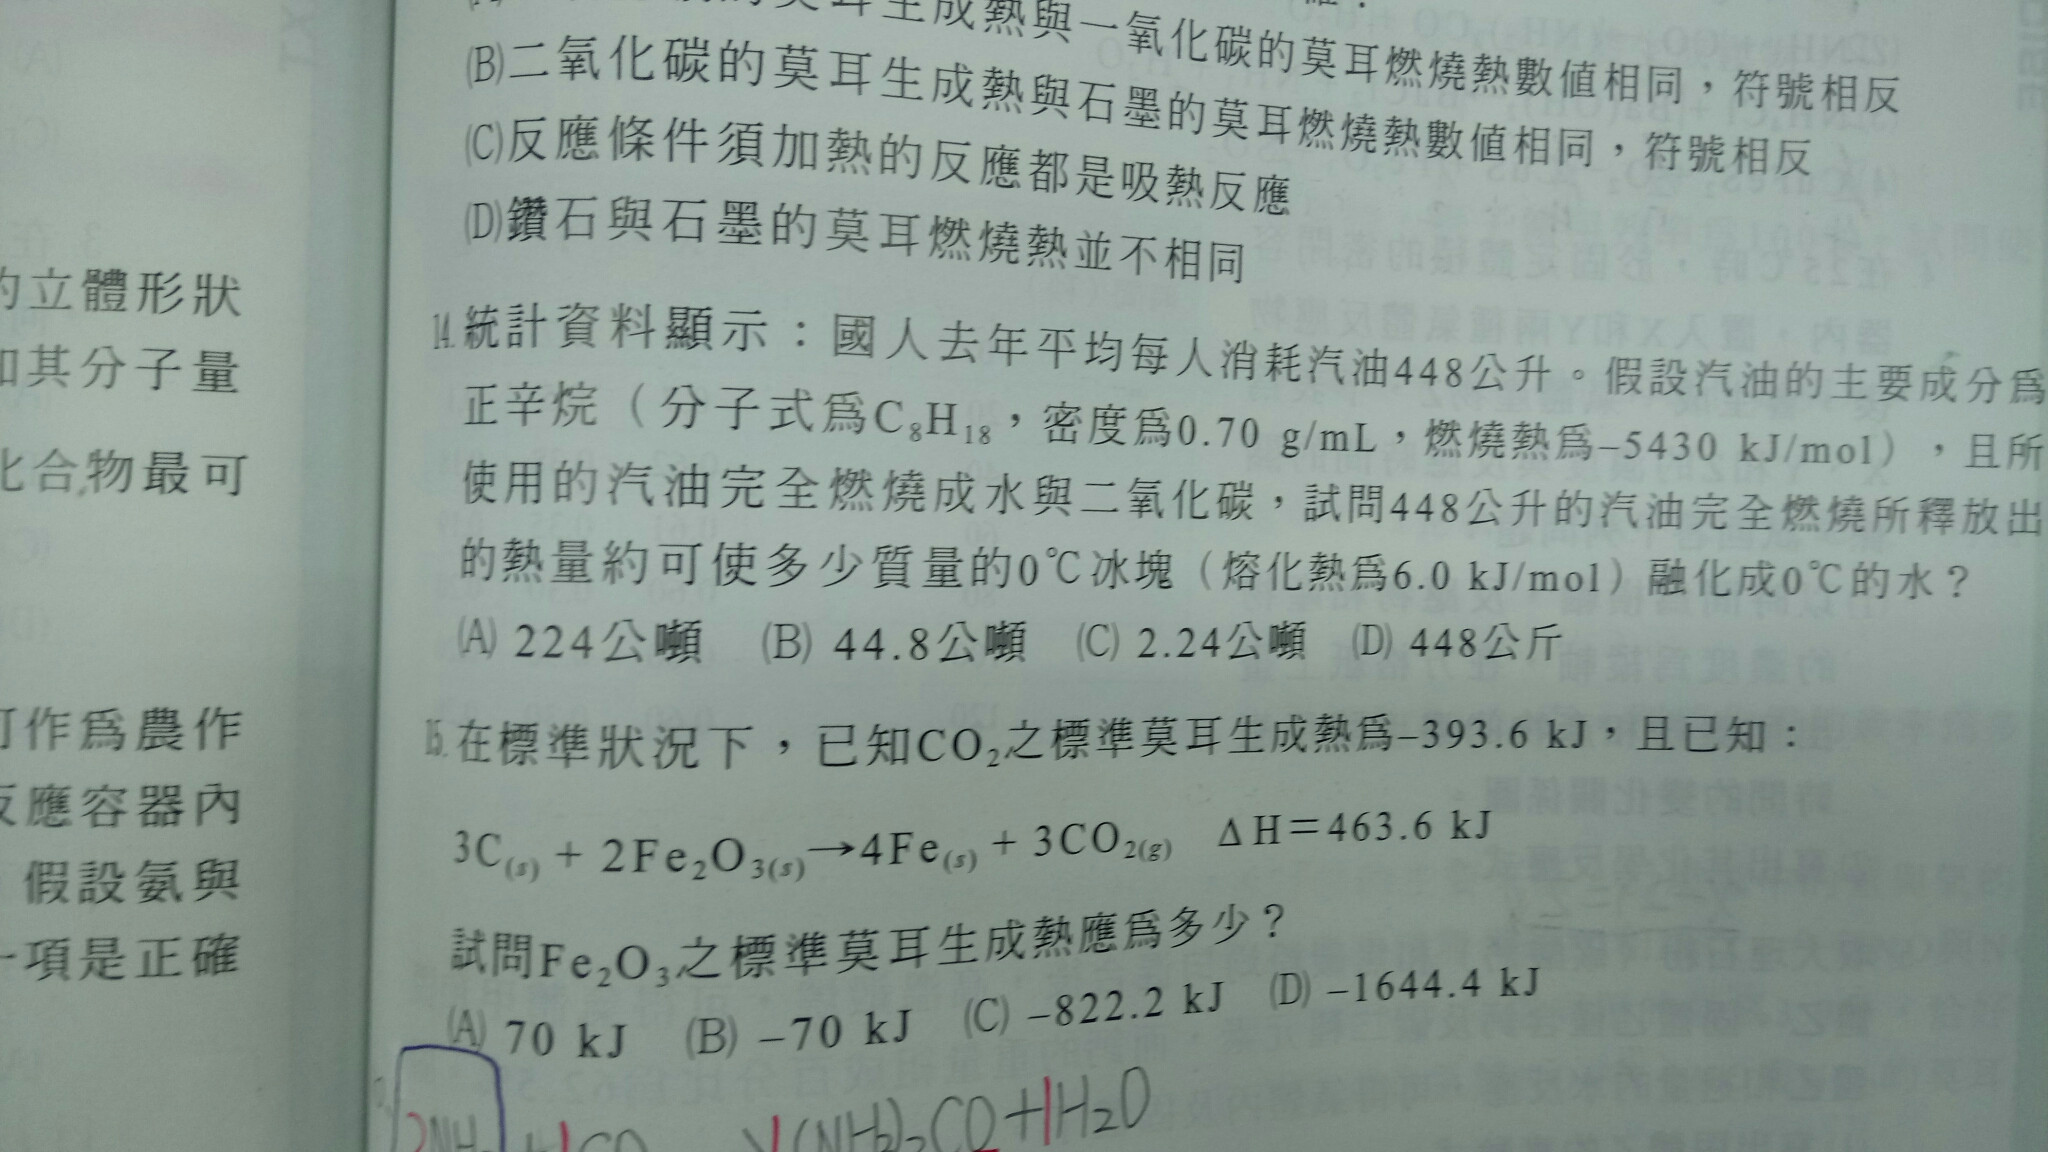 的莫耳生成熱與一氧化碳的莫耳燃燒熱數值相同，符號相反
(B)二氧化碳的莫耳生成熱與石墨的莫耳燃燒熱數值相同，符號相反
(C)反應條件須加熱的反應都是吸熱反應
(D)鑽石與石墨的莫耳燃燒熱並不相同
14.統計資料顯示：國人去年平均每人消耗汽油448公升。假設汽油的主要成分爲
正辛烷（分子式爲C₈H₁₈，密度爲0.70 g/mL，燃燒熱爲–5430 kJ/mol），且所
使用的汽油完全燃燒成水與二氧化碳，試問448公升的汽油完全燃燒所釋放出
的熱量約可使多少質量的0℃冰塊（熔化熱爲6.0 kJ/mol）融化成0℃的水？
(A) 224公噸 (B) 44.8公噸 (C) 2.24公噸 (D) 448公斤
15.在標準狀況下，已知CO₂之標準莫耳生成熱爲–393.6 kJ，且已知：
3C(s) + 2Fe₂O₃(s)→4Fe(s) + 3CO₂(g) ΔH＝463.6 kJ
試問Fe₂O₃之標準莫耳生成熱應爲多少？
(A) 70 kJ (B) –70 kJ (C) –822.2 kJ (D) –1644.4 kJ
(NH₂)₂CO+1H₂O
的立體形狀
和其分子量
化合物最可
可作爲農作
反應容器內
假設氨與
一項是正確